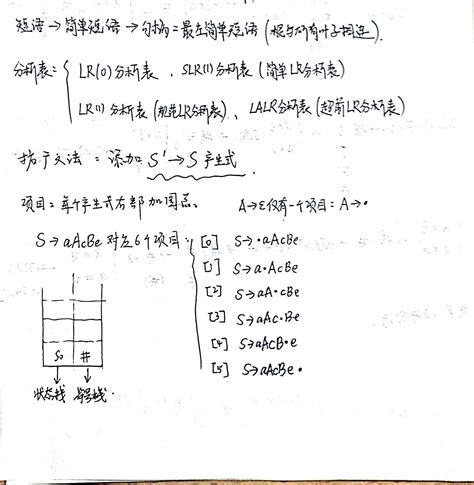 短语→简单短语→句柄=最左简单短语(根与所有叶子相连)
分析表={ LR(0)分析表、SLR(1)分析表(简单LR分析表)
LR(1)分析表(规范LR分析表)、LALR分析表(超前LR分析表)
拓广文法:添加 S'→S 产生式
项目:每个产生式右部加圆点. A→ε仅有一个项目:A→•
S→aAcBe 对应6个项目:{ [0] S→•aAcBe
[1] S→a•AcBe
[2] S→aA•cBe
[3] S→aAc•Be
[4] S→aAcB•e
[5] S→aAcBe•
S₀ #
状态栈 符号栈.